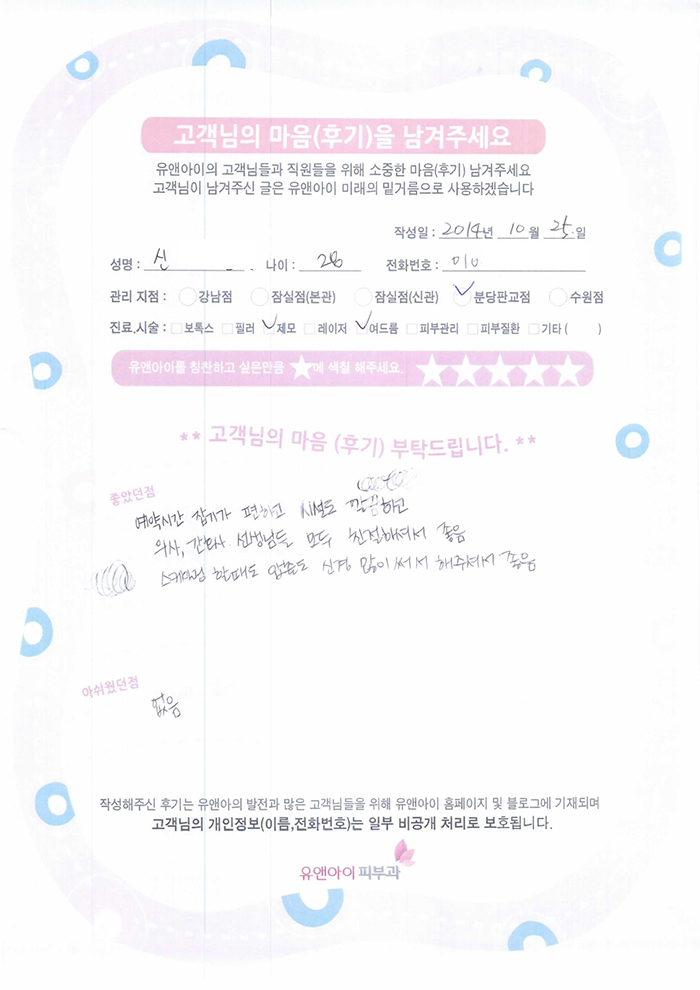 고객님의 마음(후기)을 남겨주세요
유앤아이의 고객님들과 직원들을 위해 소중한 마음(후기) 남겨주세요
고객님이 남겨주신 글은 유앤아이 미래의 밑거름으로 사용하겠습니다
작성일 : 2014년 10월 25일
성명 : 신 나이 : 28 전화번호 : 010
관리 지점 : 강남점 잠실점(본관) 잠실점(신관) 분당판교점 수원점
진료,시술 : 보톡스 필러 제모 레이저 여드름 피부관리 피부질환 기타 ( )
유앤아이를 칭찬하고 싶은만큼 ★에 색칠 해주세요. ★★★★★
** 고객님의 마음 (후기) 부탁드립니다. **
좋았던점
예약시간 잡기가 편하고 시설도 깔끔하고
의사, 간호사 선생님들 모두 친절하셔서 좋음
스케일링 할때도 압출도 신경 많이 써서 해주셔서 좋음
아쉬웠던점
없음
작성해주신 후기는 유앤아의 발전과 많은 고객님들을 위해 유앤아이 홈페이지 및 블로그에 기재되며
고객님의 개인정보(이름,전화번호)는 일부 비공개 처리로 보호됩니다.
유앤아이 피부과